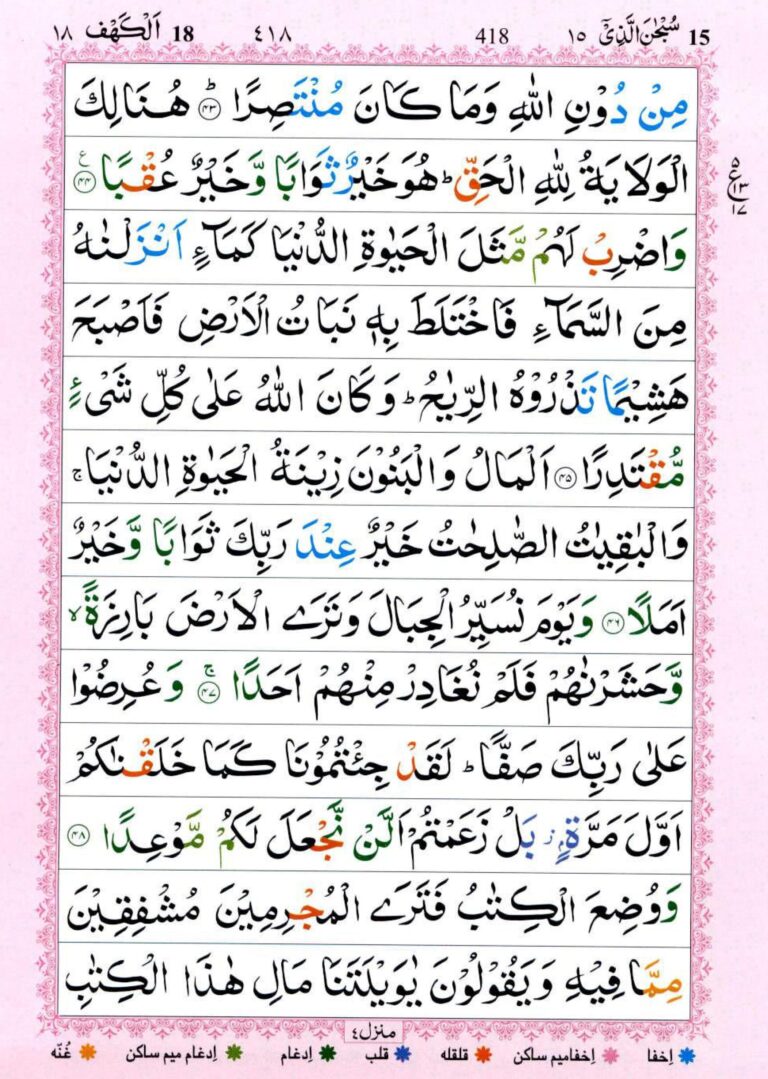 15 سُبْحٰنَ الَّذِیْۤ ١٥ 418 ٤١٨ 18 اَلْكَهْف ١٨
مِنْ دُوْنِ اللّٰهِ وَمَا كَانَ مُنْتَصِرًا ؕ ﴿۴۳﴾ هُنَالِكَ
الْوَلَايَةُ لِلّٰهِ الْحَقِّ ؕ هُوَ خَيْرٌ ثَوَابًا وَّخَيْرٌ عُقْبًا ﴿۴۴﴾ ع
ع ٥ ١٣ ١٧
وَاضْرِبْ لَهُمْ مَّثَلَ الْحَيٰوةِ الدُّنْيَا كَمَآءٍ اَنْزَلْنٰهُ
مِنَ السَّمَآءِ فَاخْتَلَطَ بِهٖ نَبَاتُ الْاَرْضِ فَاَصْبَحَ
هَشِيْمًا تَذْرُوْهُ الرِّيٰحُ ؕ وَكَانَ اللّٰهُ عَلٰى كُلِّ شَىْءٍ
مُّقْتَدِرًا ﴿۴۵﴾ اَلْمَالُ وَالْبَنُوْنَ زِيْنَةُ الْحَيٰوةِ الدُّنْيَا ۚ
وَالْبٰقِيٰتُ الصّٰلِحٰتُ خَيْرٌ عِنْدَ رَبِّكَ ثَوَابًا وَّخَيْرٌ
اَمَلًا ﴿۴۶﴾ وَيَوْمَ نُسَيِّرُ الْجِبَالَ وَتَرَى الْاَرْضَ بَارِزَةً ۙ
وَّحَشَرْنٰهُمْ فَلَمْ نُغَادِرْ مِنْهُمْ اَحَدًا ۚ ﴿۴۷﴾ وَعُرِضُوْا
عَلٰى رَبِّكَ صَفًّا ؕ لَقَدْ جِئْتُمُوْنَا كَمَا خَلَقْنٰكُمْ
اَوَّلَ مَرَّةٍۢ ز بَلْ زَعَمْتُمْ اَلَّنْ نَّجْعَلَ لَكُمْ مَّوْعِدًا ﴿۴۸﴾
وَوُضِعَ الْكِتٰبُ فَتَرَى الْمُجْرِمِيْنَ مُشْفِقِيْنَ
مِمَّا فِيْهِ وَيَقُوْلُوْنَ يٰوَيْلَتَنَا مَالِ هٰذَا الْكِتٰبِ
منزل ٤
اِخفا اِخفامیم ساكن قلقله قلب اِدغام اِدغام میم ساكن غُنّه